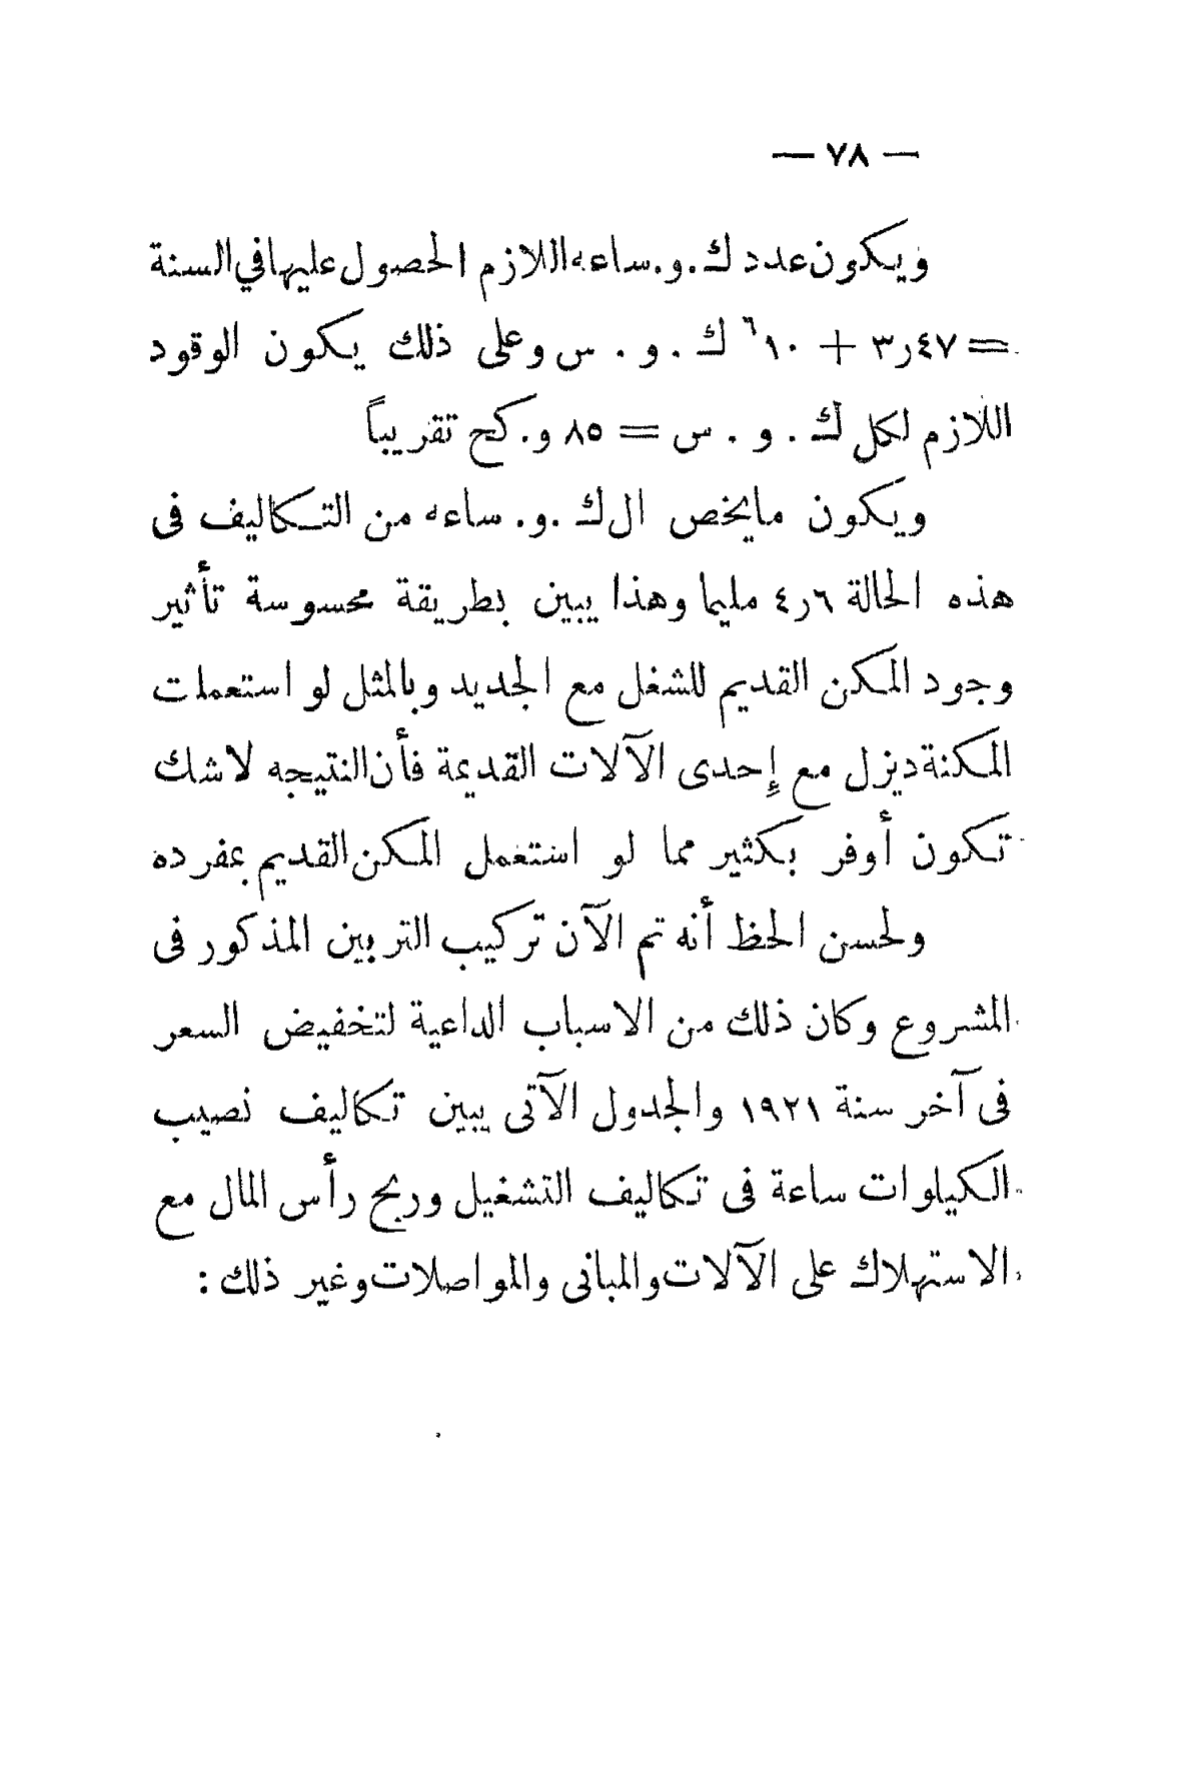 — ٧٨ —
ويكون عدد ك.و.ساعه اللازم الحصول عليها في السنة
= ٤٧ر٣ + ١٠٦ ك . و . س وعلى ذلك يكون الوقود
اللازم لكل ك . و . س = ٨٥ و. كج تقريباً
ويكون مايخص ال ك .و. ساعه من التكاليف فى
هذه الحالة ٦ر٤ مليما وهذا يبين بطريقة محسوسة تأثير
وجود المكن القديم للشغل مع الجديد وبالمثل لو استعملت
المكنة ديزل مع إحدى الآلات القديمة فأن النتيجه لا شك
تكون أوفر بكثير مما لو استعمل المكن القديم بمفرده
ولحسن الحظ أنه تم الآن تركيب التربين المذكور فى
المشروع وكان ذلك من الاسباب الداعية لتخفيض السعر
فى آخر سنة ١٩٢١ والجدول الآتى يبين تكاليف نصيب
الكيلوات ساعة فى تكاليف التشغيل وربح رأس المال مع
الاستهلاك على الآلات والمبانى والمواصلات وغير ذلك :